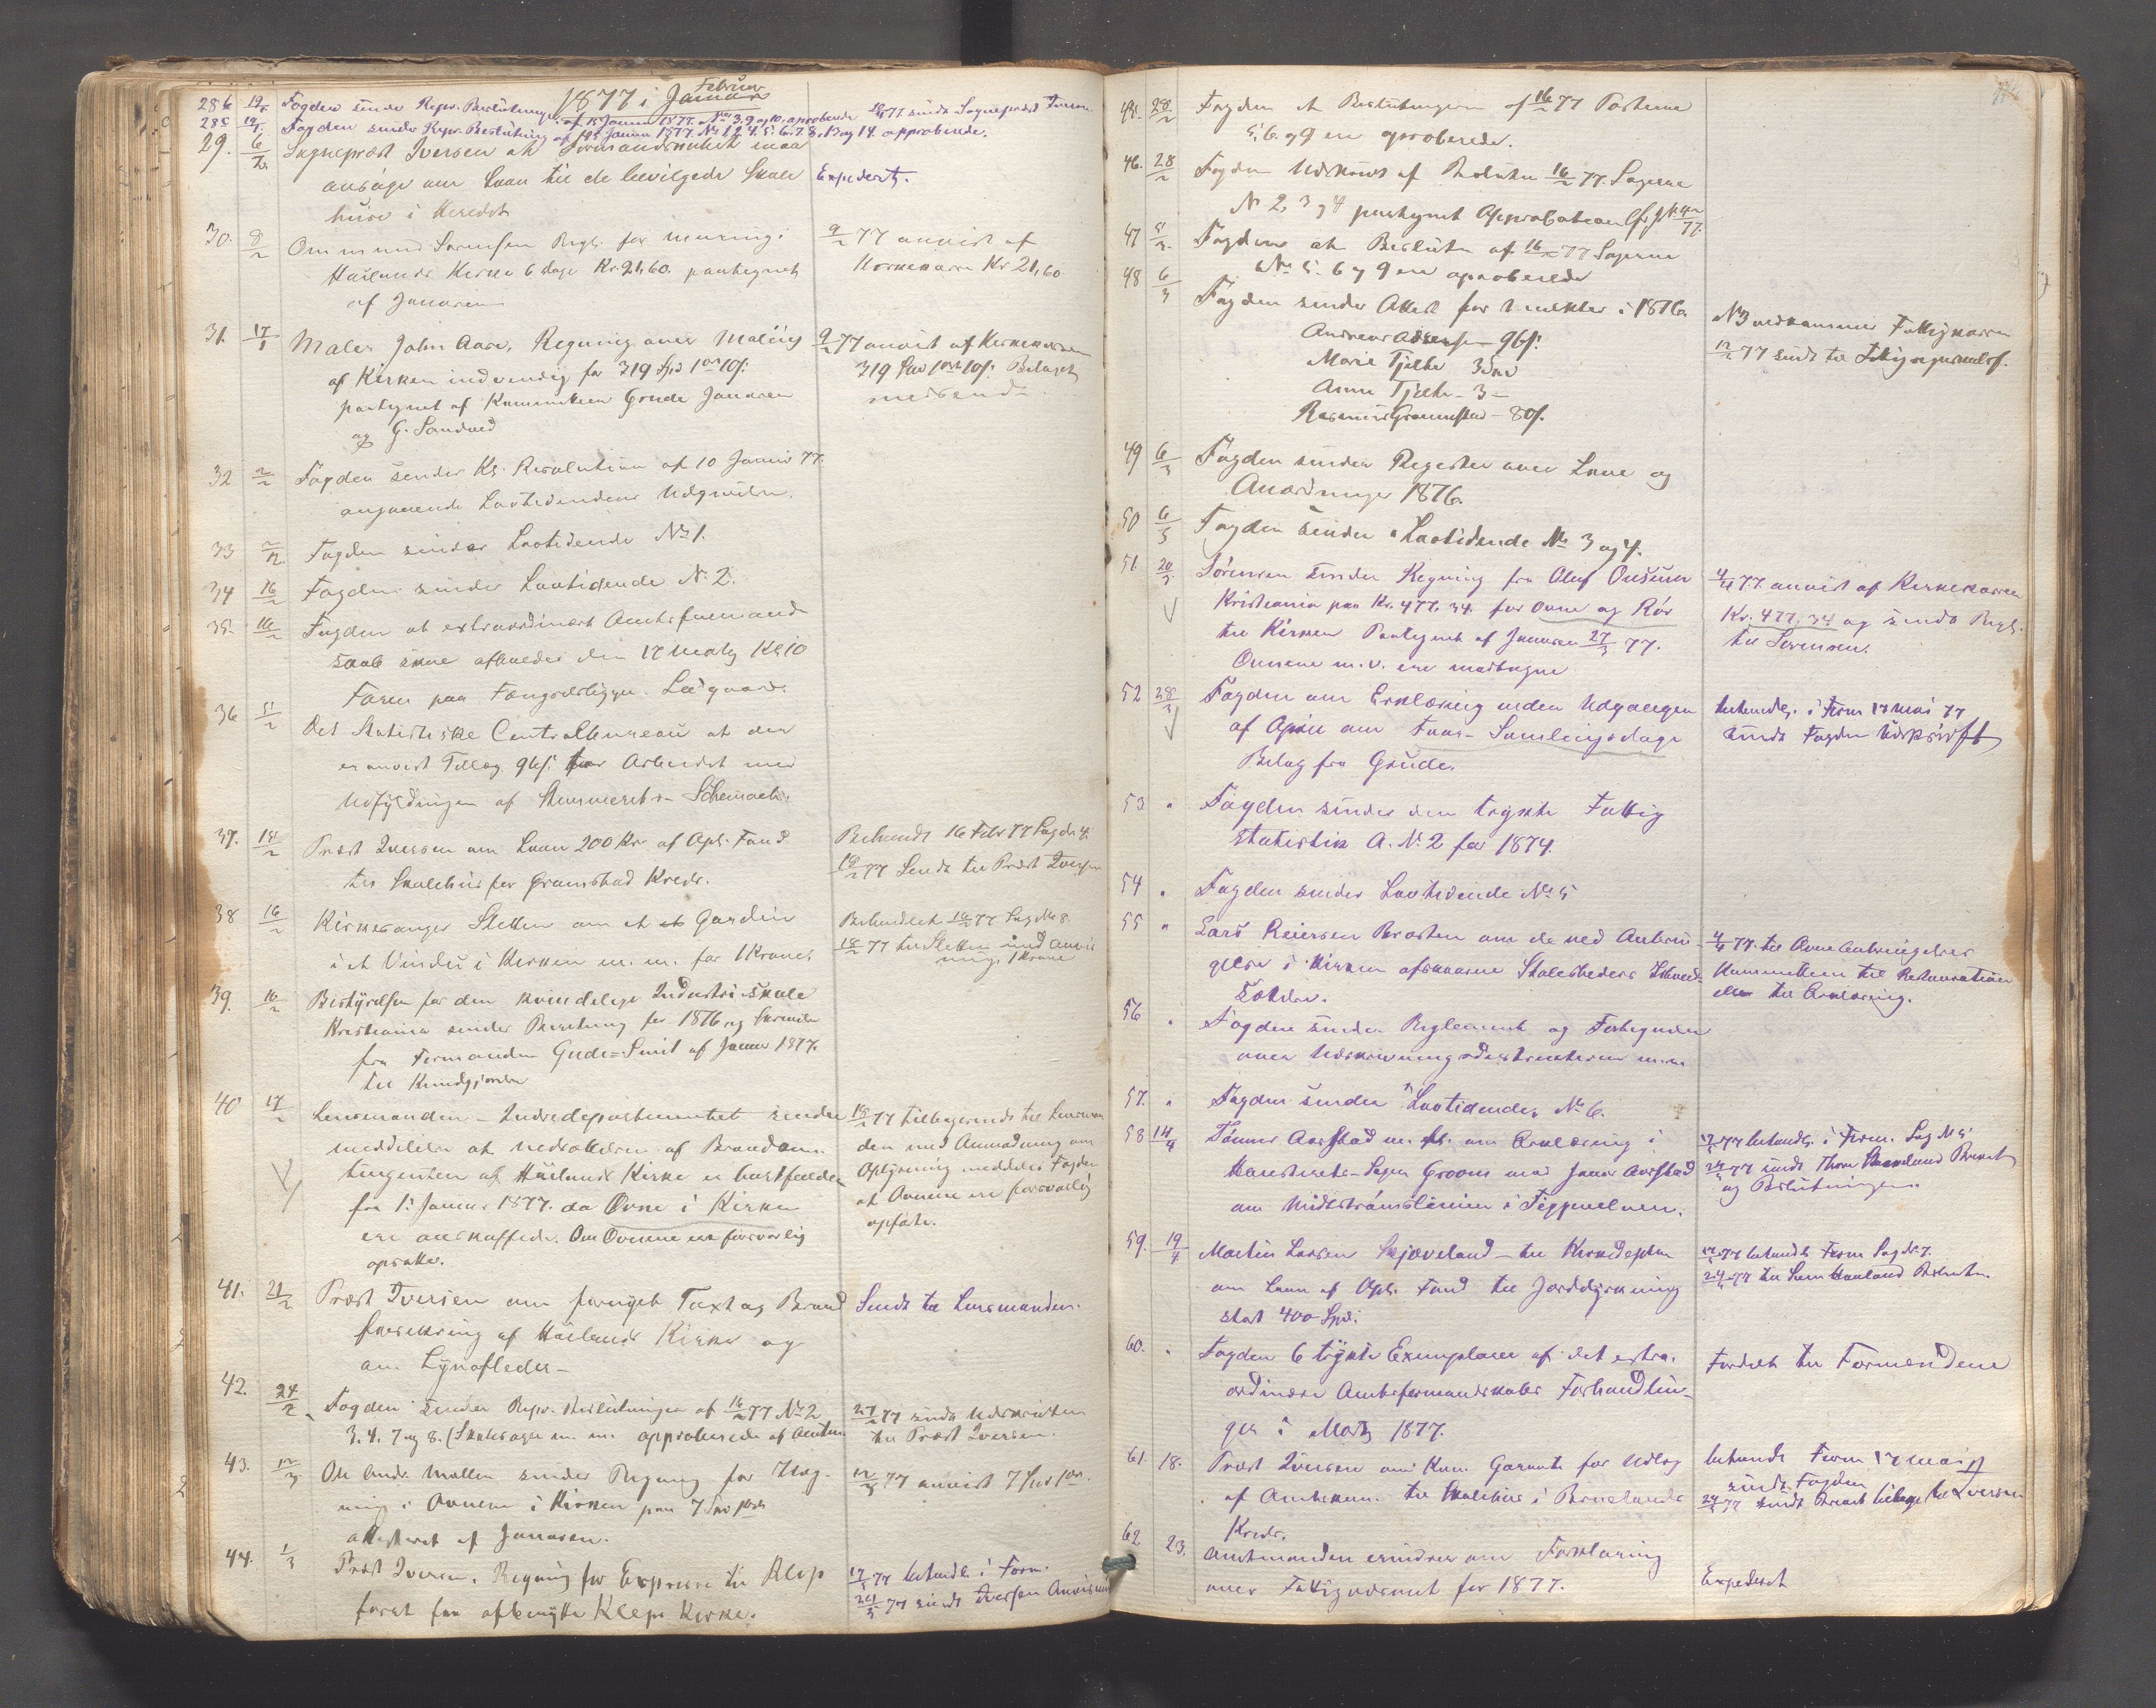 1877 i Januar
Februar
28b 19/1 Fogden sender Repr. Beslutninger af 15 Januar 1877. No 3. 9 og 10. approberede
77 sendt Sognepræst Iversen
28c 19/1 Fogden sender Repr. Beslutning af 15 Januar 1877. No 1. 2. 4. 5. 6. 7. 8. 13 og 14. approberede.
29. 6/2 Sognepræst Iversen at Formandskabet maa
ansøge om Laan til de bevilgede Skole
huse i Heredet
Expederet.
30. 8/2 Ommund Sørensen Regl. for muring i
Høilands Kirke 6 dage Kr. 21,60. paategnet
af Janasen
9/2 77 anvist af
Kirkekassen Kr 21,60
31. 17/1 Maler John Aase, Regning over Maling
af Kirken indvendig for 319 Spd 1 ort 10 s.
paategnet af Kommiteen Grude Janasen
og G. Sandved
9/2 77 anvist af Kirkekassen
319 Spd 1 ort 10 s. Bilaget
medsendt
32 2/2 Fogden sender Kl. Resolution af 10 Januar 77.
angaaende Lovtidendens Udgivelse.
33 Fogden sender Lovtidende No 1.
34 16/2 Fogden sender Lovtidende No 2.
35. 16/2 Fogden at extraordinært Amtsformand
skab skal afholdes den 17 Marts Kl 10
Form paa Fængselsbyggn. Ledgaard.
36 5/2 Det Statistiske Centralbureau at der
er anvist Tillæg 96 s. for Arbeidet med
Udfyldningen af Skemaerne
37. 14/2 Præst Iversen om Laan 200 Kr. af Opl. Fond
til Skolehus for Gramstad Kreds.
Behandl 16 Febr 77 Sag No 4.
18/2 77 Sendt til Præst Iversen
38 16/2 Kirkesanger Sletten om et Gardin
i et Vindu i Kirken m. m. for 1 Krone.
Behandlet 16/2 77 Sag No 8.
18/2 77 til Sletten med anvis
ning 1 Krone
39. 16/2 Bestyrelsen for den kvindelige Industriskole
Kristiania sender Beretning for 1876 og Skrivelse
fra Formanden Gude-Smit af Januar 1877.
til Kundgjørelse
40 17/2 Lensmanden - Indredepartementet sender
meddelelse at nedsættelsen af Brandcon-
tingenten af Høilands Kirke er bortfalden
fra 1. Januar 1877. da Ovne i Kirken
ere anskaffede. Om Ovnene ere forsvarlig
opsatte.
18/2 77 tilbagesendt til Lensman
den med Anmodning om
Oplysning meddeles Fogden
at Ovnene ere forsvarlig
opsatte.
41. 21/2 Præst Iversen om fornyet Taxt og Brand
forsikring af Høilands Kirke og
om Lynafleder -
Sendt til Lensmanden.
42. 24/2 Fogden sender Repr. Beslutninger af 16/2 77 No 2
3. 4. 7 og 8. (Skolesager m. m. approberede af Amtm.
27/2 77 sendt Udskriften
til Præst Iversen.
43. 12/3 Ole Andr. Mellen sender Regning for Ilæg-
ning i Ovnene i Kirken paa 7 Spd 1 ort
attesteret af Janasen.
12/3 77 anvist 7 Spd 1 ort.
44. 1/3 Præst Iversen. Regning for Expresse til Klep
forat faa afbenytte Klep Kirke.
17/5 77 behandl. i Form.
24/5 77 sendt Iversen Anvisning
45. 28/2 Fogden at Beslutningerne af 16/2 77 Posterne
5. 6. og 9 ere aproberede.
46. 28/2 Fogden Udskrift af Beslutn 16/2 77. Sagerne
No 2, 3 og 4 paategnet Approbation
47 5/3 Fogden at Beslutn af 16/2 77 Sagerne
No 5. 6 og 9 ere aproberede
48 6/3 Fogden sender Attest for Mulkter i 1876.
Andreas Assersen 96 s.
Marie Tjelta 3 Spd
Anna Tjelta - 3 -
Rasmus Gramstad - 80 s.
No 3 vedkommer Fattigkassen
12/3 77 sendt til
49 6/3 Fogden sender Register over Love og
Anordninger 1876.
50 6/3 Fogden sender Lovtidende No 3 og 4.
51. 20/3 Sørensen sender Regning fra Oluf Onsum
Kristiania paa Kr. 477, 34. for Ovne og Rør
til Kirken Paategnet af Janasen 27/3 77.
Ovnene m. v. ere modtagne
4/4 77. anvist af Kirkekassen
Kr. 477, 34 og sendt Regl.
til Sørensen.
52 28/3 Fogden om Erklæring inden Udgangen
af April om Faar-Samlingsdage
Bilag fra Grude.
behandl. i Form 17 Mai 77
sendt Fogden Udskrift
53 " Fogden sender den trykte Fattig
statistik A. No 2 for 1874.
54 " Fogden sender Lovtidende No 5
55 " Lars Reiersen Bråsten om de ved Anbrin-
gelse i Kirken afskaarne Stolestæder
4/4 77. til Ovne Anbringelses
Kommiteen til Restauration
eller til Erklæring.
56 " Fogden sender Reglement og Fortegnelse
over Udskrivningsdistrikterne m. m.
57. " Fogden sender Lovtidende No 6.
58 14/4 Tønnes Aarstad m. fl. om Erklæring i
Høiesterets-Sagen Grooms mod Jonas Aarstad
om Midtstrømslinien i Figgenelven.
17/5 77 behandl. i Form. Sag No 5.
24/5 77 sendt Skaaland Brevet
og Beslutningen.
59. 19/4 Martin Larsen Skjæveland - til Kirkedeptm
om Laan af Opl. Fond til Jorddyrkning
stort 400 Spd.
17/5 77 behandl. Form Sag No 7.
24/5 77 til Skaaland Beslutn.
60. " Fogden 6 trykte Exemplarer af det extra-
ordinære Amtsformandskabs Forhandlin-
ger i Marts 1877.
Fordelt til Formændene
61. 18. Præst Iversen om Kom. Garanti for Udlæg
af Amtskom. til Skolehus i
Kreds.
behandl Form 17 Mai 77
sendt Fogden
24/5 77 sendt Brevet tilbage til Iversen
62 23. Amtmanden erindrer om Forklaring
over Fattigvæsenet for 1877.
Expederet